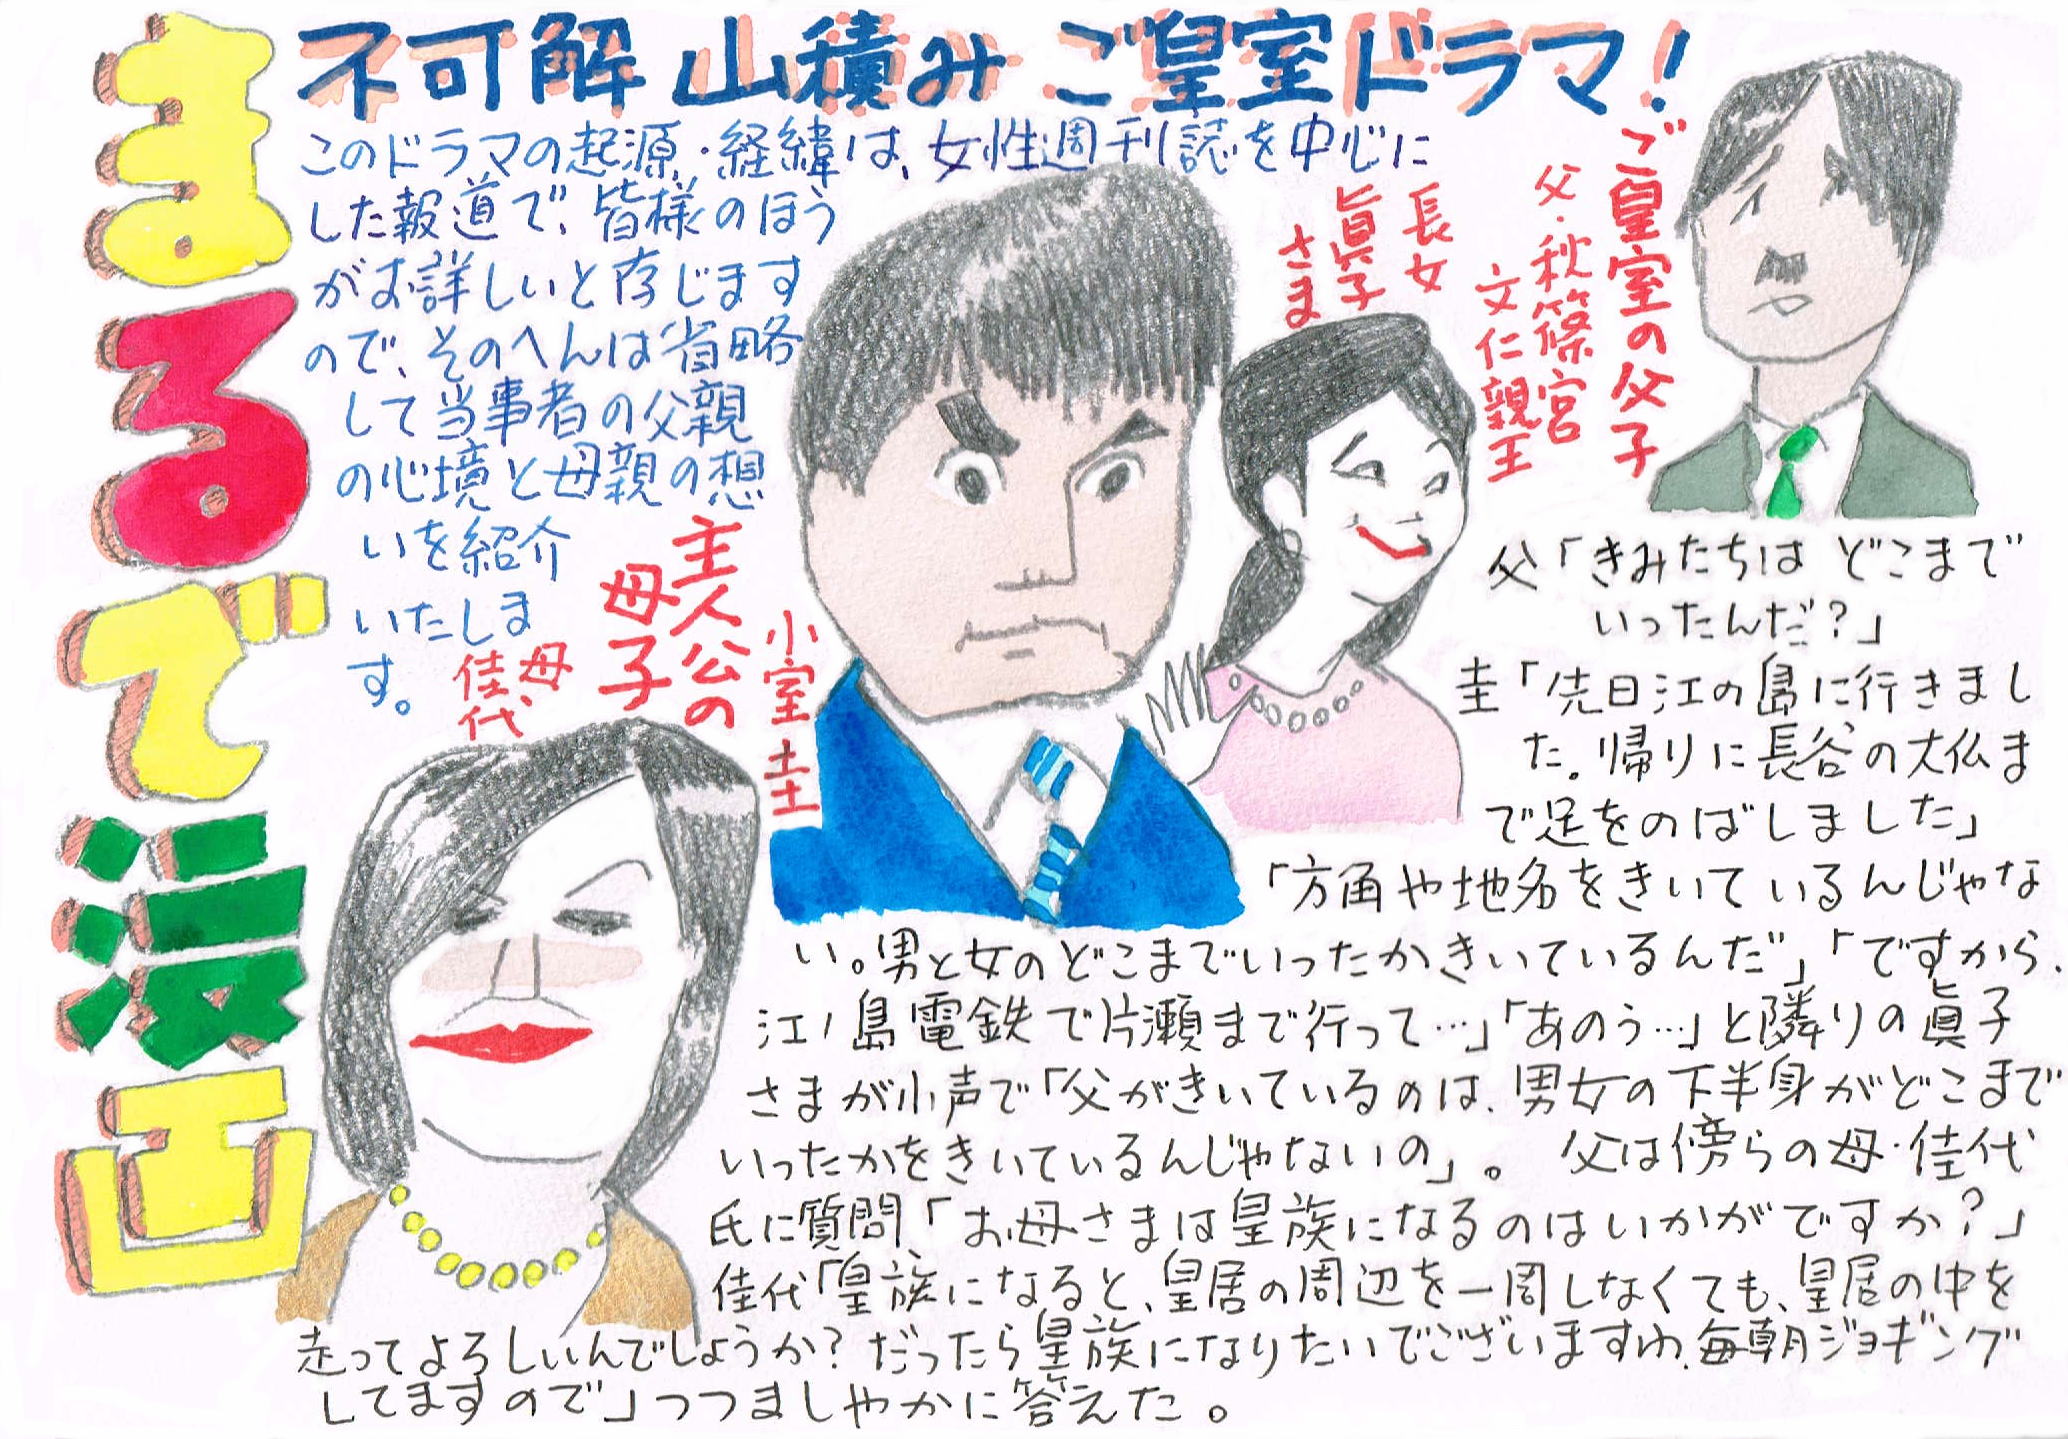 まるで漫画
不可解 山積み ご皇室ドラマ!
このドラマの起源・経緯は、女性週刊誌を中心に
した報道で、皆様のほう
がお詳しいと存じます
ので、そのへんは省略
して当事者の父親
の心境と母親の想
いを紹介
いたしま
す。
主人公の
母子
母、
佳代
小室圭
長女
眞子
さま
ご皇室の父子
父・秋篠宮
文仁親王
父「きみたちは どこまで
いったんだ?」
圭「先日江の島に行きまし
た。帰りに長谷の大仏ま
で足をのばしました」
「方角や地名をきいているんじゃな
い。男と女のどこまでいったかきいているんだ」「ですから、
江ノ島電鉄で片瀬まで行って…」「あのう…」と隣りの眞子
さまが小声で「父がきいているのは、男女の下半身がどこまで
いったかをきいているんじゃないの」。 父は傍らの母・佳代
氏に質問「お母さまは皇族になるのはいかがですか?」
佳代「皇族になると、皇居の周辺を一周しなくても、皇居の中を
走ってよろしいんでしょうか? だったら皇族になりたいでございますわ、毎朝ジョギング
してますので」つつましやかに答えた。